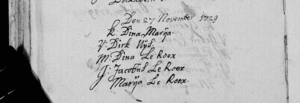 Den 27 November 1729
k Dina Marÿa
V Dirk Uÿs
M Dina Le Roex
G: Jacobus Le Roex
Marÿa Le Roex